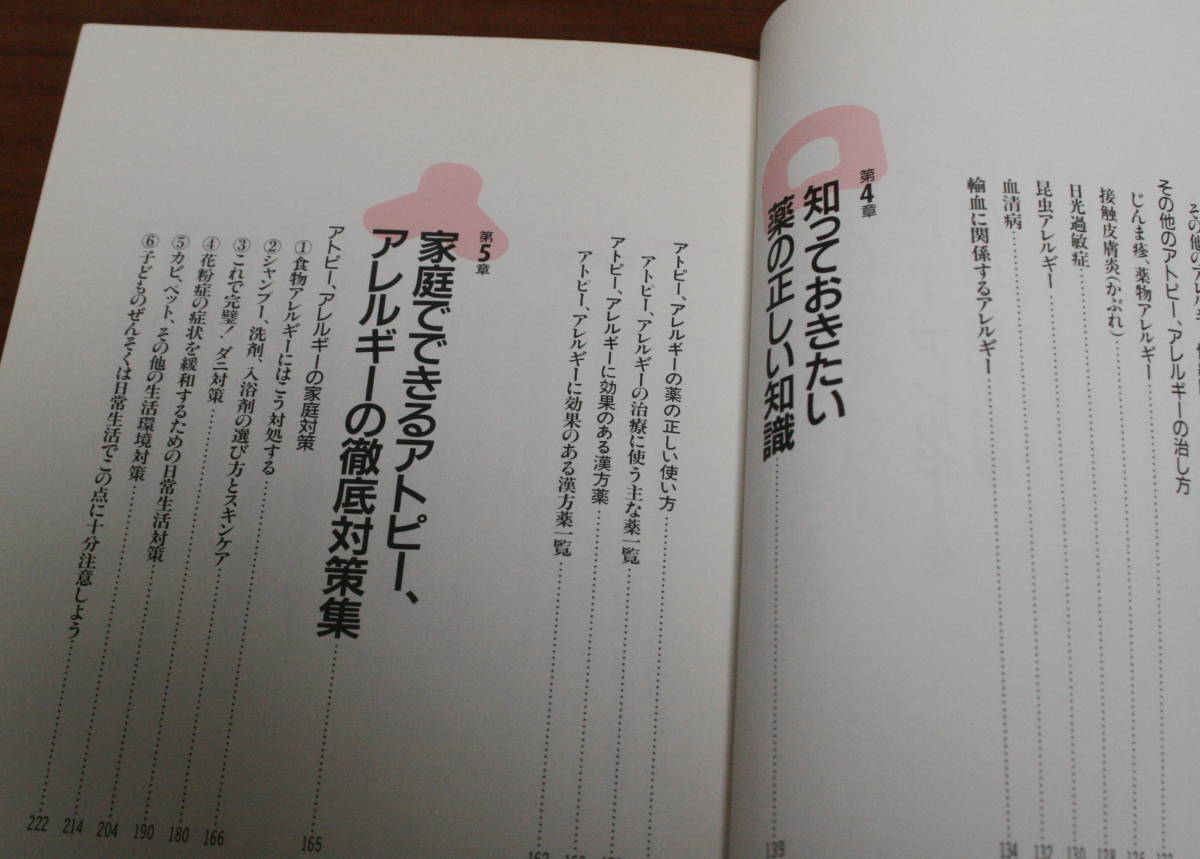 その他のアトピー、アレルギーの治し方
じんま疹、薬物アレルギー
接触皮膚炎(かぶれ)
128
日光過敏症
130
昆虫アレルギー
132
血清病
134
輸血に関係するアレルギー
第4章
知っておきたい
薬の正しい知識
139
アトピー、アレルギーの薬の正しい使い方
アトピー、アレルギーの治療に使う主な薬一覧
アトピー、アレルギーに効果のある漢方薬
アトピー、アレルギーに効果のある漢方薬一覧
第5章
家庭でできるアトピー、
アレルギーの徹底対策集
165
アトピー、アレルギーの家庭対策
①食物アレルギーにはこう対処する
166
②シャンプー、洗剤、入浴剤の選び方とスキンケア
180
③これで完璧！ダニ対策
190
④花粉症の症状を緩和するための日常生活対策
204
⑤カビ、ペット、その他の生活環境対策
214
⑥子どものぜんそくは日常生活でこの点に十分注意しよう
222